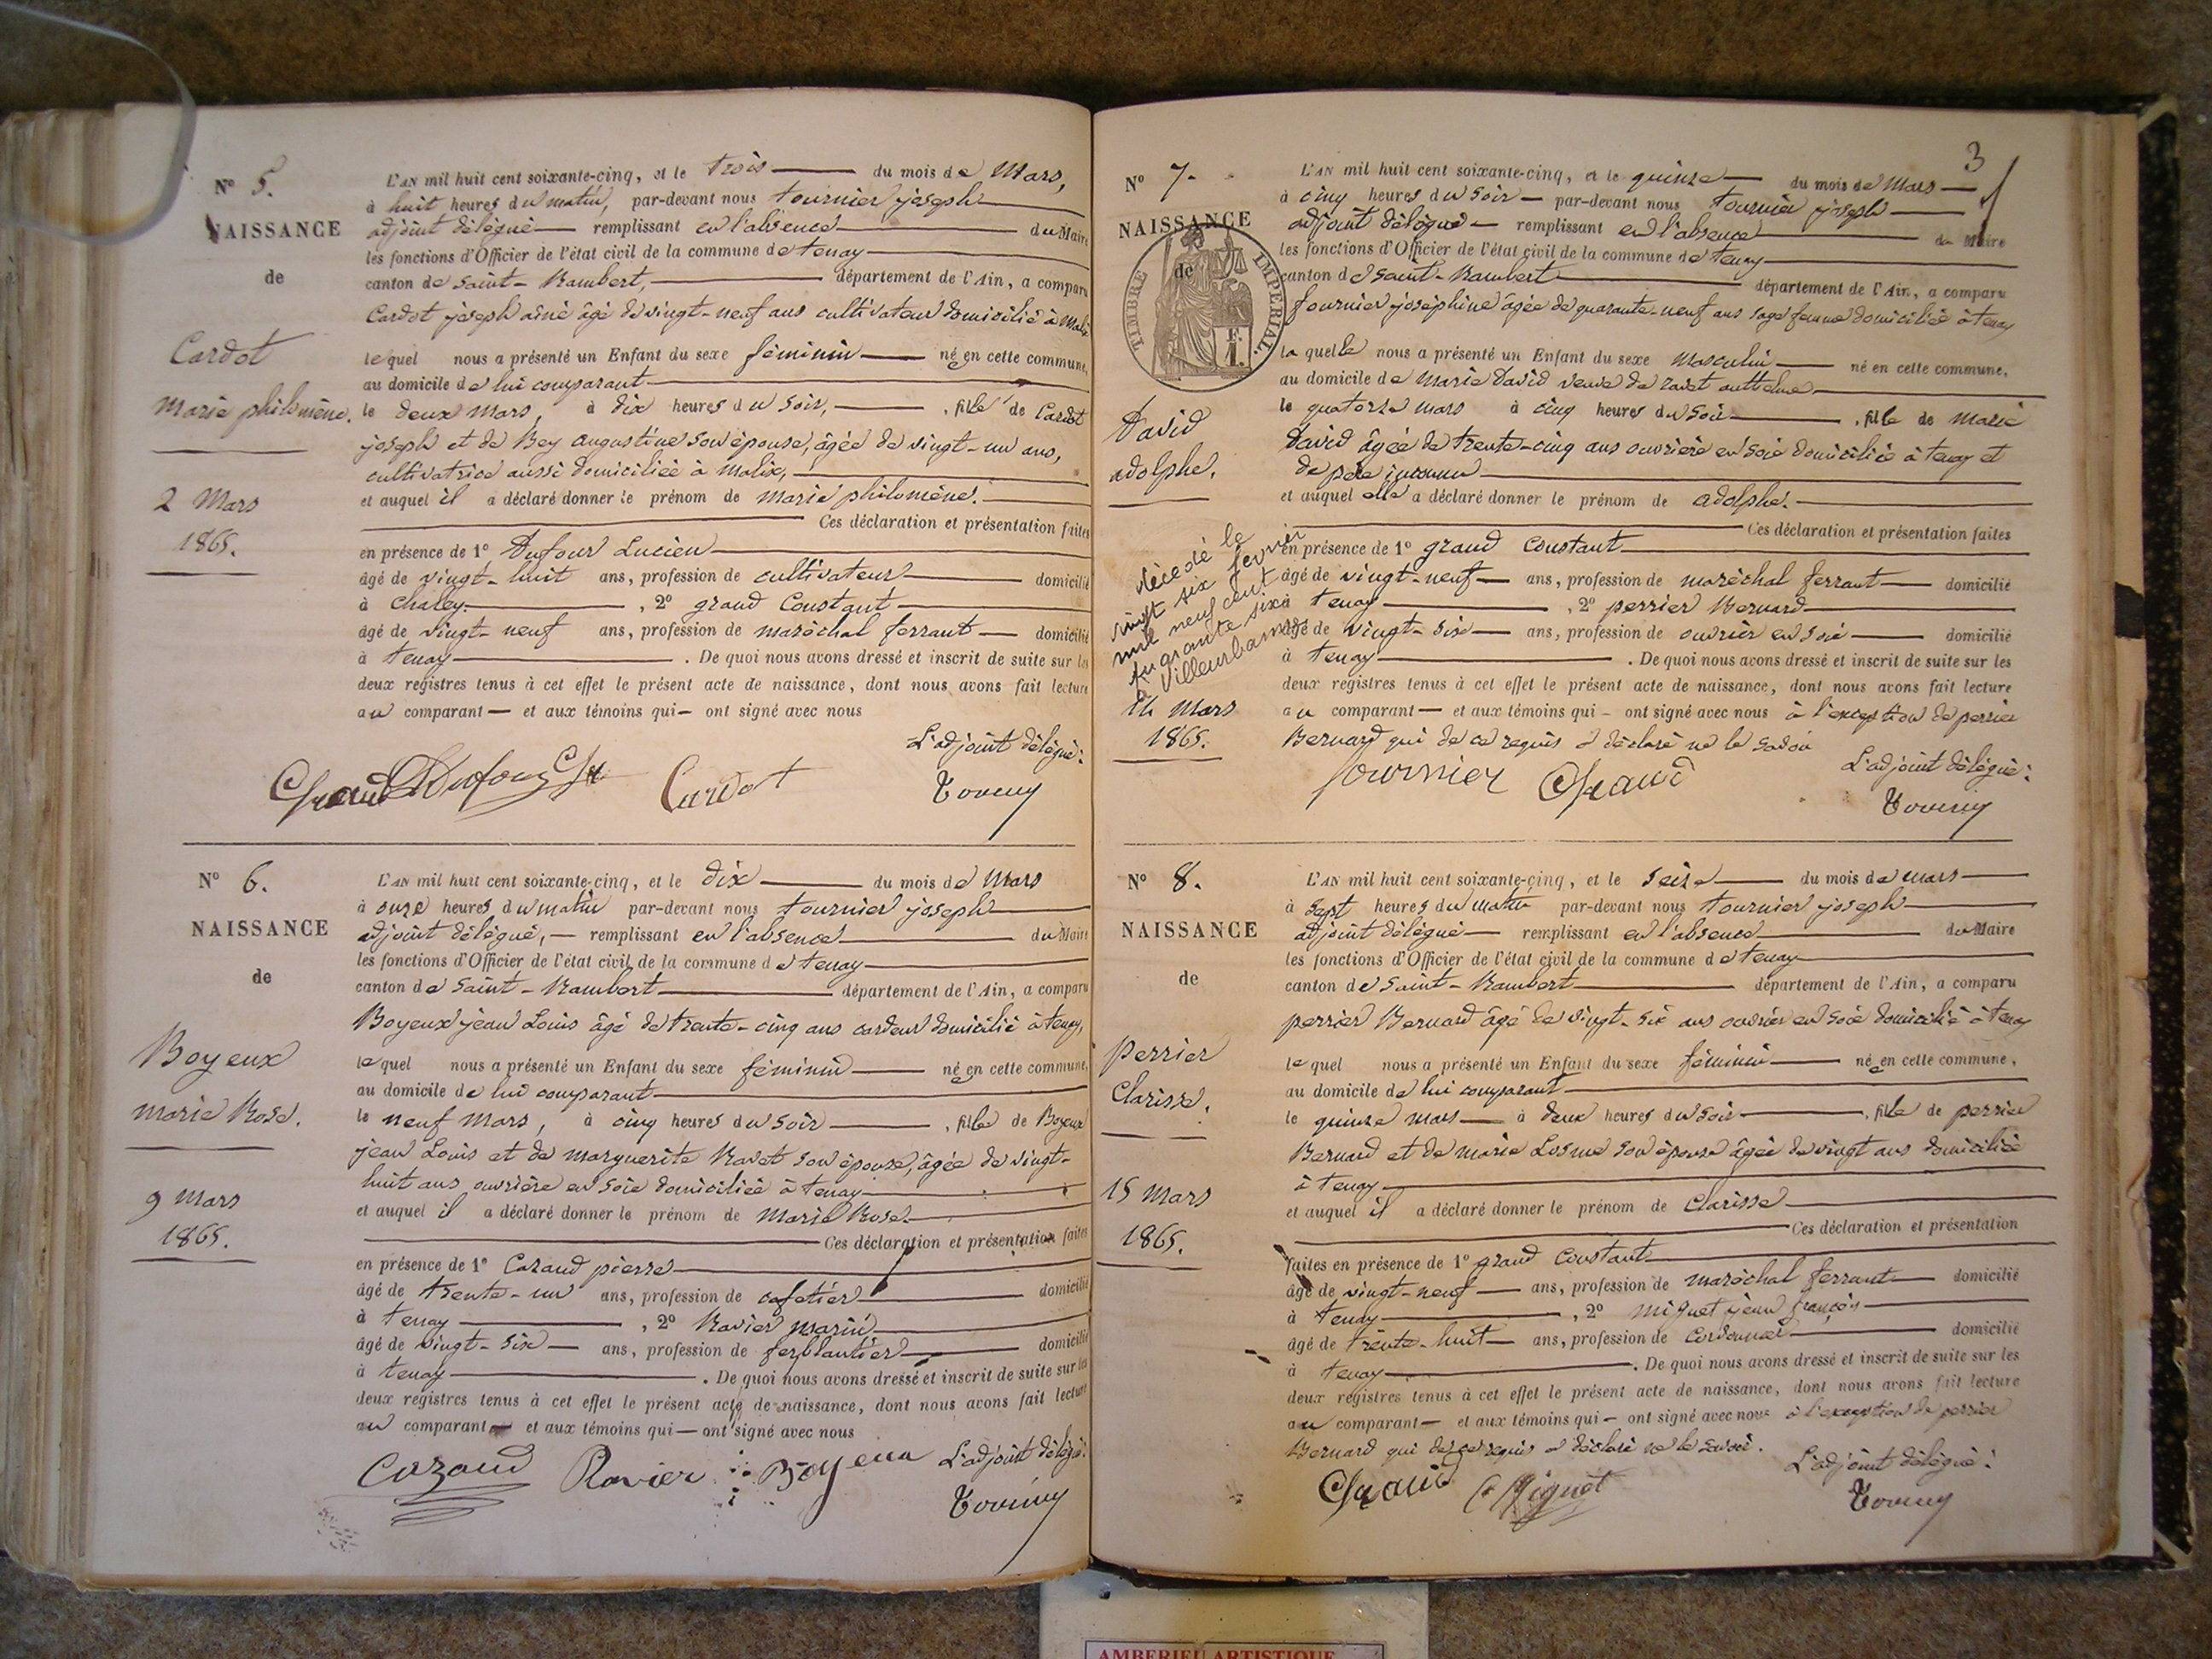 N° 5.
NAISSANCE
de
Cardot
marie philomène.
2 Mars
1865.
L'AN mil huit cent soixante-cinq, et le trois du mois de Mars,
à huit heures du matin, par-devant nous tournier joseph
adjoint délégué remplissant en l'absence du Maire
les fonctions d'Officier de l'état civil de la commune de tenay
canton de saint-Rambert, département de l'Ain, a comparu
Cardot joseph ainé âgé de vingt-neuf ans cultivateur domicilié à Malix
lequel nous a présenté un Enfant du sexe féminin née en cette commune,
au domicile de lui comparant
le deux mars, à dix heures du soir, , fille de Cardot
joseph et de Bey augustine son épouse, âgée de vingt-un ans,
cultivatrice aussi domiciliée à Malix,
et auquel il a déclaré donner le prénom de marie philomène.
Ces déclaration et présentation faites
en présence de 1° Dufour Lucien
âgé de vingt-huit ans, profession de cultivateur domicilié
à chaley. , 2° grand Constant
âgé de vingt-neuf ans, profession de maréchal ferrant domicilié
à tenay . De quoi nous avons dressé et inscrit de suite sur les
deux registres tenus à cet effet le présent acte de naissance, dont nous avons fait lecture
au comparant et aux témoins qui ont signé avec nous
L'adjoint délégué:
Grand Dufour Cardot
N° 6.
NAISSANCE
de
Boyeux
marie Rose.
9 Mars
1865.
L'AN mil huit cent soixante-cinq, et le dix du mois de Mars
à onze heures du matin par-devant nous tournier joseph
adjoint délégué, remplissant en l'absence du Maire
les fonctions d'Officier de l'état civil de la commune de tenay
canton de saint-Rambert département de l'Ain, a comparu
Boyeux jean Louis âgé de trente-cinq ans cardeur domicilié à tenay,
lequel nous a présenté un Enfant du sexe féminin née en cette commune,
au domicile de lui comparant
le neuf mars, à cinq heures du soir , fille de Boyeux
jean Louis et de marguerite Ravet son épouse, âgée de vingt-
huit ans ouvrière en soie domiciliée à tenay
et auquel il a déclaré donner le prénom de Marie Rose.
Ces déclaration et présentation faites
en présence de 1° Cazaud pierre
âgé de trente-un ans, profession de cafetier domicilié
à tenay , 2° Ravier marin
âgé de vingt-six ans, profession de ferblantier domicilié
à tenay . De quoi nous avons dressé et inscrit de suite sur les
deux registres tenus à cet effet le présent acte de naissance, dont nous avons fait lecture
au comparant et aux témoins qui ont signé avec nous
Cazaud Ravier Boyeux L'adjoint délégué:
3
N° 7.
NAISSANCE
de
TIMBRE IMPERIAL
F.
1.
David
adolphe.
décédé le
vingt six février
mil neuf cent
quarante six
à Villeurbanne
14 Mars
1865.
L'AN mil huit cent soixante-cinq, et le quinze du mois de Mars
à cinq heures du soir par-devant nous tournier joseph
adjoint délégué remplissant en l'absence du Maire
les fonctions d'Officier de l'état civil de la commune de tenay
canton de saint-Rambert département de l'Ain, a comparu
fournier joséphine âgée de quarante-neuf ans sage femme domiciliée à tenay
laquelle nous a présenté un Enfant du sexe masculin né en cette commune,
au domicile de Marie David veuve de ravet anthelme
le quatorze mars à cinq heures du soir , fils de Marie
David âgée de trente-cinq ans ouvrière en soie domiciliée à tenay et
de père inconnu
et auquel elle a déclaré donner le prénom de adolphe.
Ces déclaration et présentation faites
en présence de 1° grand Constant
âgé de vingt-neuf ans, profession de maréchal ferrant domicilié
à tenay , 2° perrier Bernard
âgé de vingt-six ans, profession de ouvrier en soie domicilié
à tenay . De quoi nous avons dressé et inscrit de suite sur les
deux registres tenus à cet effet le présent acte de naissance, dont nous avons fait lecture
au comparant et aux témoins qui ont signé avec nous à l'exception de perrier
Bernard qui de ce requis a déclaré ne le savoir
L'adjoint délégué:
fournier Grand
N° 8.
NAISSANCE
de
perrier
Clarisse.
15 Mars
1865.
L'AN mil huit cent soixante-cinq, et le seize du mois de mars
à sept heures du matin par-devant nous tournier joseph
adjoint délégué remplissant en l'absence du Maire
les fonctions d'Officier de l'état civil de la commune de tenay
canton de saint-Rambert département de l'Ain, a comparu
perrier Bernard âgé de vingt-six ans ouvrier en soie domicilié à tenay
lequel nous a présenté un Enfant du sexe féminin née en cette commune,
au domicile de lui comparant
le quinze mars à deux heures du soir , fille de perrier
Bernard et de marie Losme son épouse âgée de vingt ans domiciliée
à tenay
et auquel il a déclaré donner le prénom de Clarisse
Ces déclaration et présentation
faites en présence de 1° grand Constant
âgé de vingt-neuf ans, profession de maréchal ferrant domicilié
à tenay , 2° miguet jean françois
âgé de trente-huit ans, profession de cordonnier domicilié
à tenay . De quoi nous avons dressé et inscrit de suite sur les
deux registres tenus à cet effet le présent acte de naissance, dont nous avons fait lecture
au comparant et aux témoins qui ont signé avec nous à l'exception de perrier
Bernard qui de ce requis a déclaré ne le savoir.
L'adjoint délégué:
Grand Miguet
AMBERIEU ARTISTIQUE